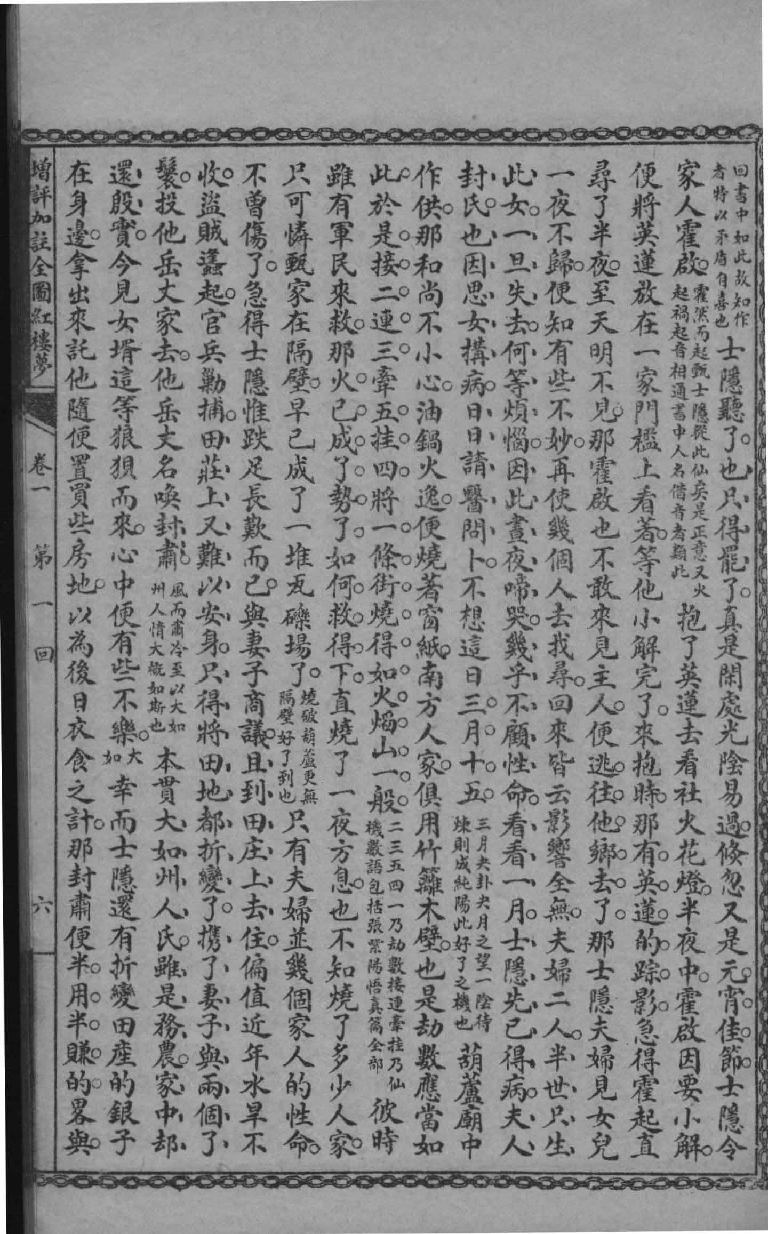 回書中如此故知作
者特以矛盾自喜也
士隱聽了也只得罷了真是閑處光陰易過倐忽又是元宵佳節士隱令
家人霍啟
霍然而起甄士隱從此仙矣是正意又火
起禍起音相通書中人名借音者類此
抱了英蓮去看社火花燈半夜中霍啟因要小解
便將英蓮放在一家門檻上看著等他小解完了來抱時那有英蓮的踪影急得霍起直
尋了半夜至天明不見那霍啟也不敢來見主人便逃往他鄉去了那士隱夫婦見女兒
一夜不歸便知有些不妙再使幾個人去找尋回來皆云影響全無夫婦二人半世只生
此女一旦失去何等煩惱因此晝夜啼哭幾乎不顧性命看看一月士隱先已得病夫人
封氏也因思女搆病日日請醫問卜不想這日三月十五
三月夬卦夬月之望一陰待
煉則成純陽此好了之機也
葫蘆廟中
作供那和尚不小心油鍋火逸便燒著窗紙南方人家俱用竹籬木壁也是劫數應當如
此於是接二連三牽五挂四將一條街燒得如火熖山一般
二三五四一乃劫數接連牽挂乃仙
機數語包括張紫陽悟真篇全部
彼時
雖有軍民來救那火已成了勢了如何救得下直燒了一夜方息也不知燒了多少人家
只可憐甄家在隔壁早已成了一堆瓦礫場了
燒破葫蘆更無
隔壁好了到也
只有夫婦並幾個家人的性命
不曾傷了急得士隱惟跌足長歎而已與妻子商議且到田庄上去住偏值近年水旱不
收盜賊蠭起官兵勦捕田莊上又難以安身只得將田地都折變了攜了妻子與兩個了
鬟投他岳丈家去他岳丈名喚封肅
風而肅冷至以大如
州人情大概如斯也
本貫大如州人氏雖是務農家中却
還殷實今見女壻這等狼狽而來心中便有些不樂
大
如
幸而士隱還有折變田產的銀子
在身邊拿出來託他隨便置買些房地以為後日衣食之計那封肅便半用半賺的畧與
增評加註全圖紅樓夢
卷一
第一回
六